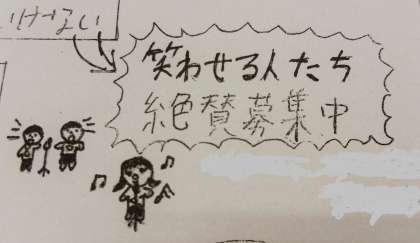 いけない
笑わせる人たち
絶賛募集中